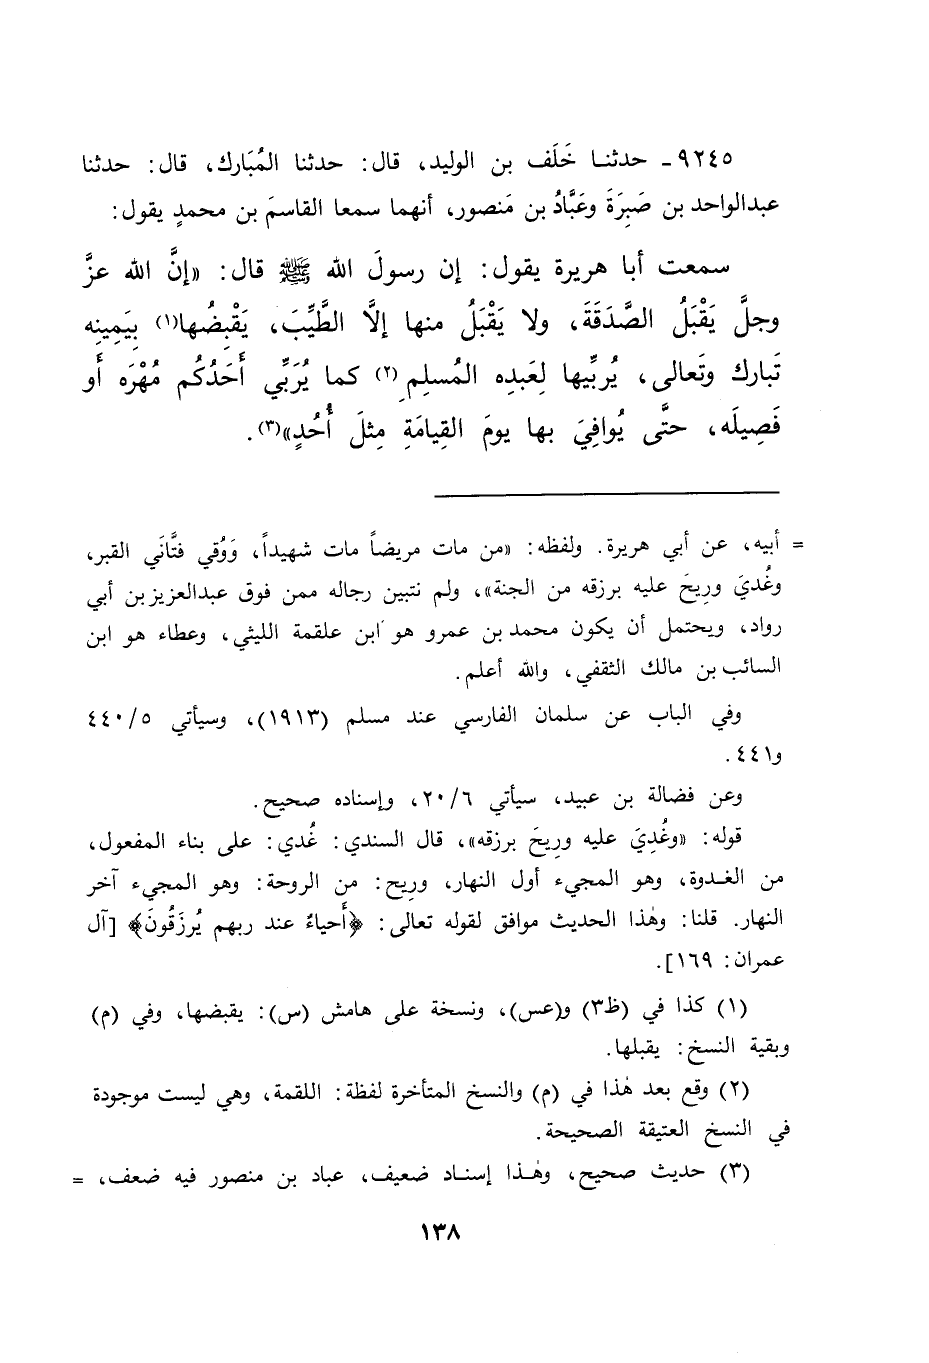 ٩٢٤٥ـ حدثنـا خَلَف بن الوليد، قال: حدثنا المُبَارك، قال: حدثنا
عبدالواحد بن صَبِرَةَ وعَبَّادُ بن مَنصور، أنهما سمعا القاسمَ بن محمدٍ يقول:
سمعت أبا هريرة يقول: إن رسولَ الله ﷺ قال: «إنَّ الله عزَّ
وجلَّ يَقْبَلُ الصَّدَقَةَ، ولا يَقْبَلُ منها إلَّا الطَّيِّبَ، يَقْبِضُها(١) بِيَمِينِه
تَبارك وتَعالى، يُربِّيها لِعَبدِه المُسلِمِ(٢) كما يُرَبِّي أَحَدُكُم مُهْرَه أَو
فَصِيلَه، حتَّى يُوافِيَ بها يومَ القِيامَةِ مِثلَ أُحُدٍ»(٣).
= أبيه، عن أبي هريرة. ولفظه: «من مات مريضاً مات شهيداً، وَوُقي فتَّانَي القبر،
وغُديَ ورِيحَ عليه برزقه من الجنة»، ولم نتبين رجاله ممن فوق عبدالعزيز بن أبي
رواد، ويحتمل أن يكون محمد بن عمرو هو ابن علقمة الليثي، وعطاء هو ابن
السائب بن مالك الثقفي، والله أعلم.
وفي الباب عن سلمان الفارسي عند مسلم (١٩١٣)، وسيأتي ٤٤٠/٥
و٤٤١.
وعن فضالة بن عبيد، سيأتي ٢٠/٦، وإسناده صحيح.
قوله: «وغُدِيَ عليه ورِيحَ برزقه»، قال السندي: غُدي: على بناء المفعول،
من الغـدوة، وهو المجيء أول النهار، وريح: من الروحة: وهو المجيء آخر
النهار. قلنا: وهٰذا الحديث موافق لقوله تعالى: ﴿أَحياءٌ عند ربهم يُرزَقُونَ﴾ [آل
عمران: ١٦٩].
(١) كذا في (ظ٣) و(عس)، ونسخة على هامش (س): يقبضها، وفي (م)
وبقية النسخ: يقبلها.
(٢) وقع بعد هٰذا في (م) والنسخ المتأخرة لفظة: اللقمة، وهي ليست موجودة
في النسخ العتيقة الصحيحة.
(٣) حديث صحيح، وهٰـذا إسنـاد ضعيف، عباد بن منصور فيه ضعف، =
١٣٨